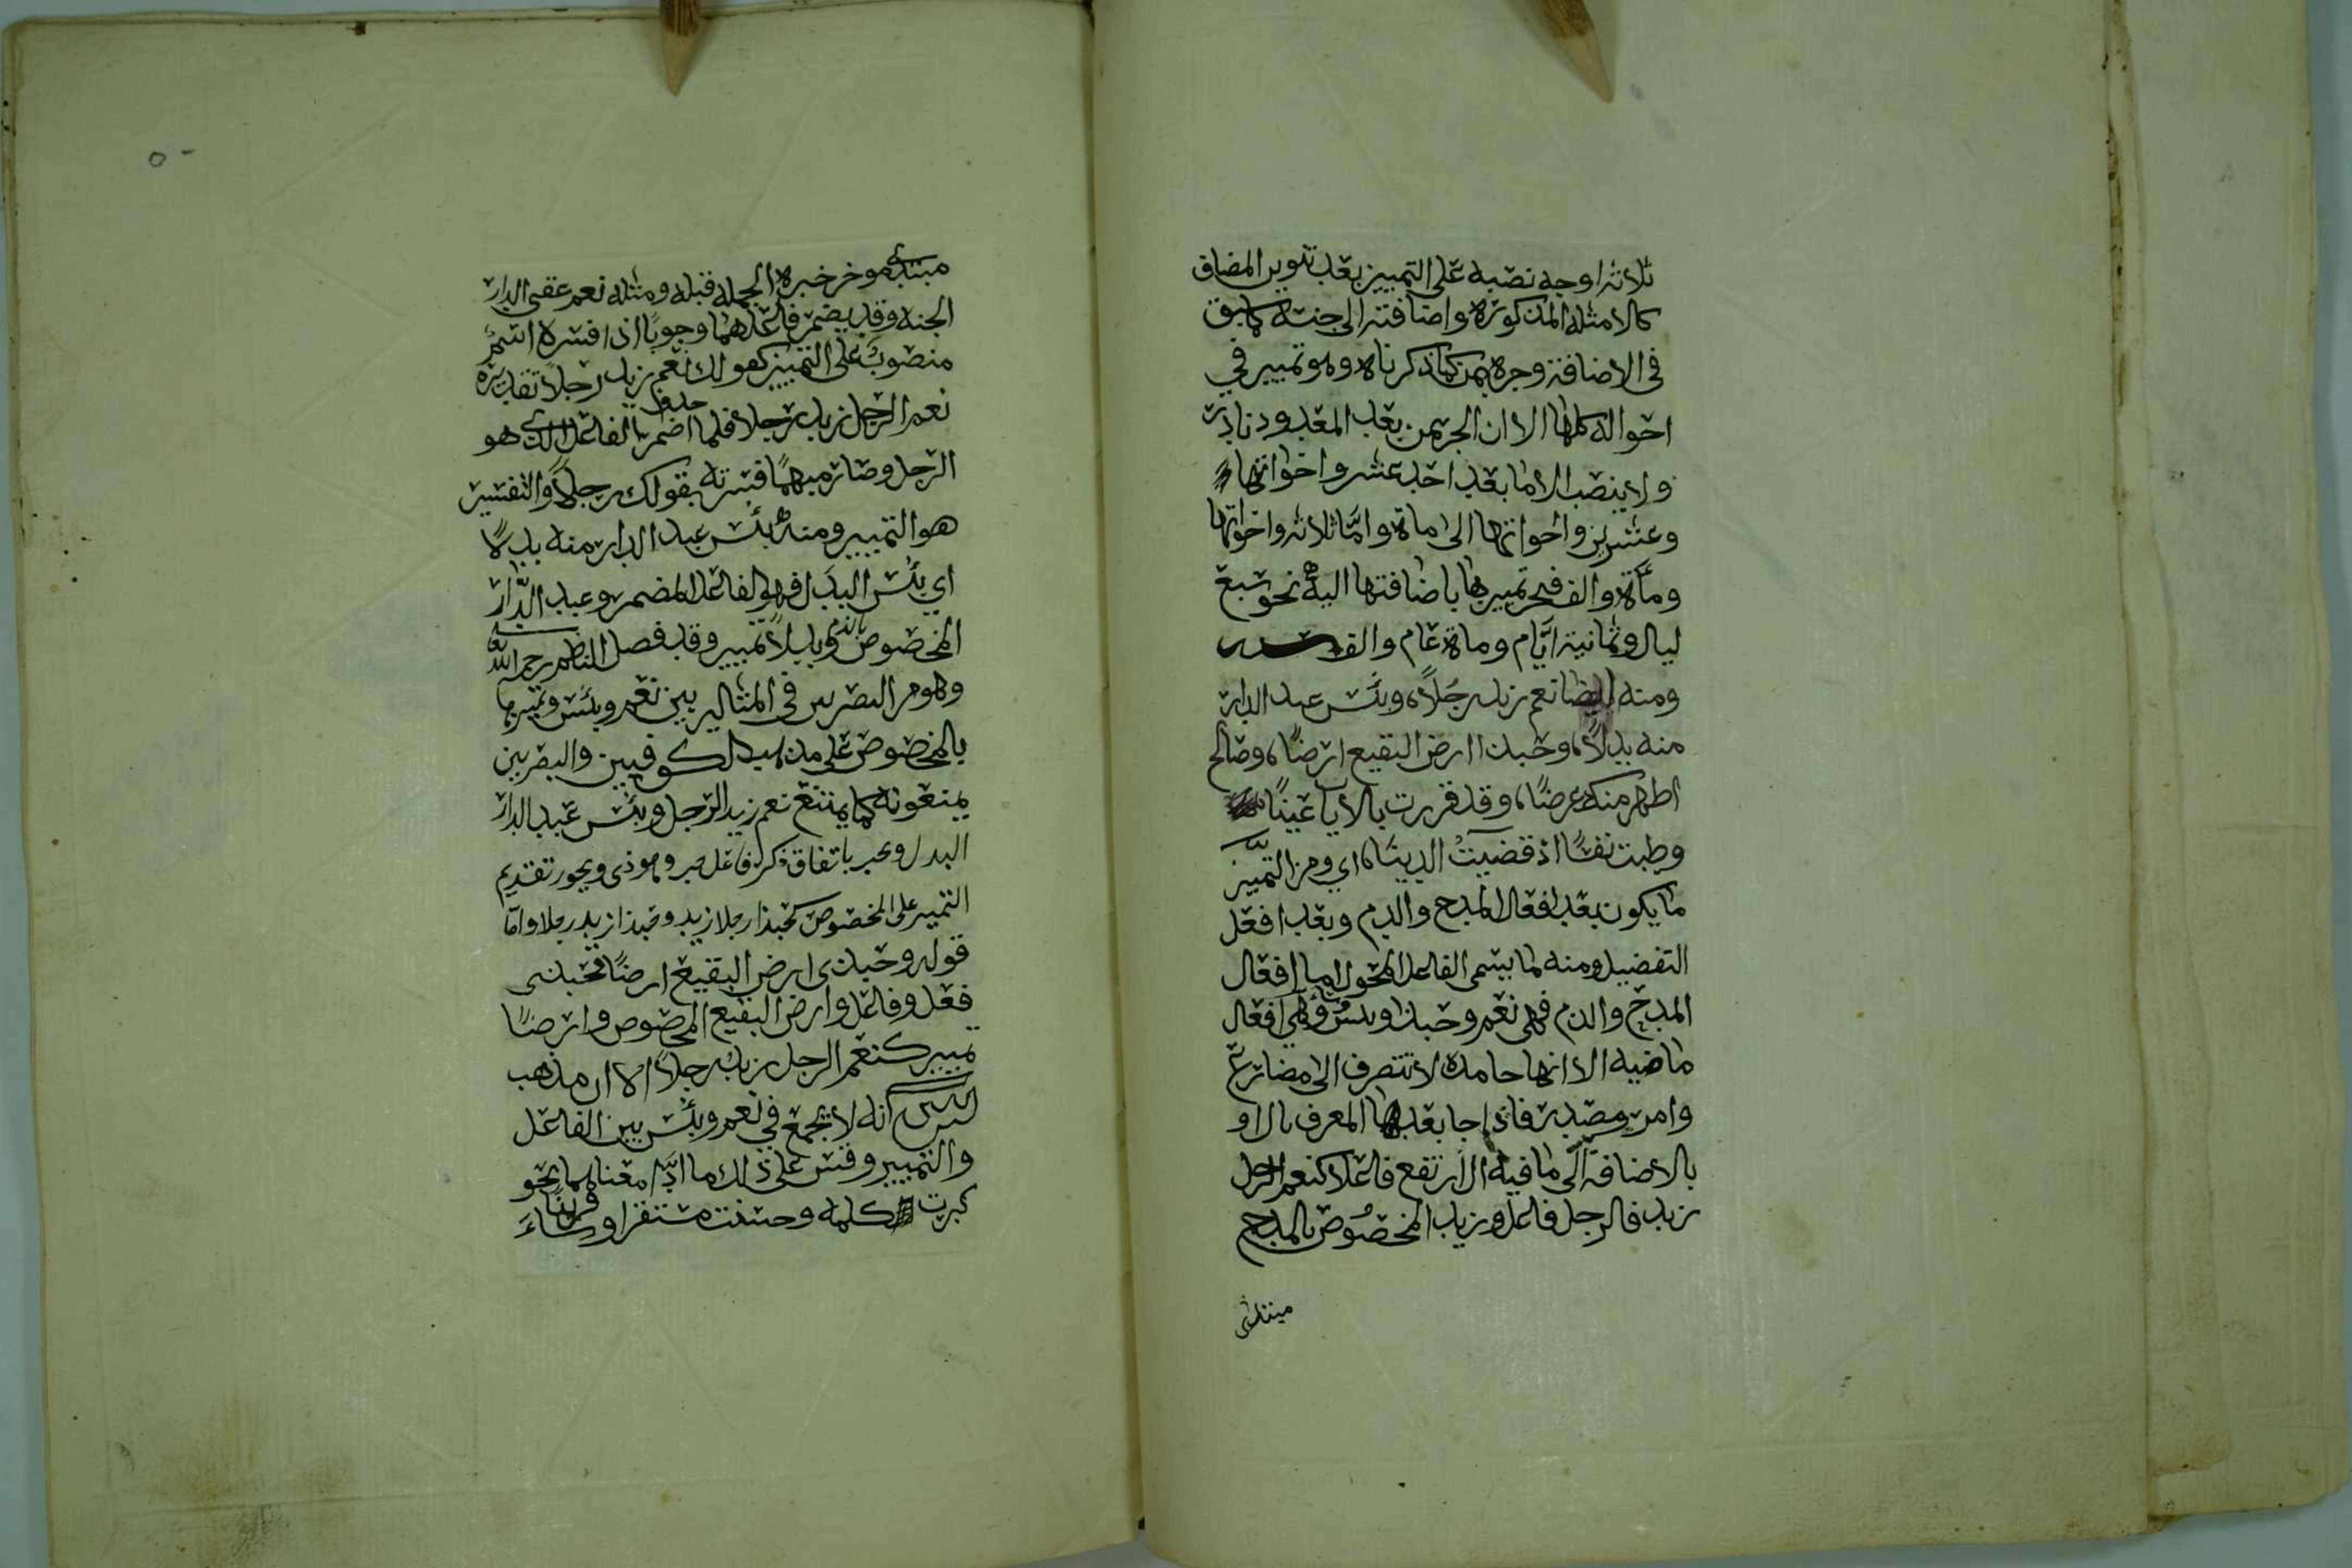 ثلاثه اوجه نصبه على التمييز بعد تنوين المضاف
كالامثله المذكورة واضافته الى جنسه كما سبق
في الاضافة وجره بمن كما ذكرناه وهو تمييز في
احواله كلها الا ان الجر بمن بعد المعدود نادر
ولا ينصب الا ما بعد احد عشر واخواتها
وعشرين واخواتها الى ماة واما ثلاثه واخواتها
ومأة والف فيجر تمييزها باضافتها اليه نحو سبع
ليال وثمانية ايام وماة عام والف
ومنه ايضا نعم زيد رجلًا، وبئس عبد الدار
منه بدلًا، وحبذا ارض البقيع ارضًا، وصالح
اطهر منك عرضًا، وقد قررت بالايا عينًا
وطبت نفسًا اذ قضيت الدينا، اي ومن التميّيز
ما يكون بعد افعال المدح والذم وبعد افعل
التفضيل ومنه ما يسمى الفاعل المحول اما افعال
المدح والذم فهي نعم وحبذا وبئس وهي افعال
ماضيه الا انها جامدة لا تتصرف الى مضارع
وامر ومصدر فاذا جا بعدها المعرف بال او
بالاضافة الى ما فيه ال ارتفع فاعلا كنعم الرجل
زيد فالرجل فاعل وزيد المخصوص بالمدح
مبتدئ
٥٠
مبتدئ موخر خبره الجمله قبله ومثله نعم عقبى الدار
الجنه وقد يضمر فاعلهما وجوبًا اذا فسره اسم
منصوب على التمييز كقولك نعم زيد رجلًا تقديره
نعم الرجل زيد رجلا فلما اضمر الفاعل الذي هو
الرجل وصار مبهمًا فسرته بقولك رجلًا والتفسير
هو التمييز ومنه بئس عبد الدار منه بدلًا
اي بئس البدل فهو الفاعل المضمر وعبد الدّار
المخصوص بالذم وبدلًا تمييز وقد فصل الناظم رحمه الله
وهو من البصريين في المثالين بين نعم وبئس وتمييزها
بالمخصوص على مذهب الكوفيين والبصريين
يمنعونه كما يمتنع نعم زيد الرجل وبئس عبد الدار
البدل ويجب باتفاق ذكر فاعل حب وهو ذى ويجوز تقديم
التمييز على المخصوص كحبذا رجلا زيد وحبذا زيد رجلا واما
قوله وحبذى ارض البقيع ارضًا فحبذى
فعل وفاعل وارض البقيع المخصوص وارضًا
تمييز كنعم الرجل زيد رجلًا الا ان مذهب
انه لا يجمع في نعم وبئس بين الفاعل
والتمييز وقس على ذلك ما ادّا معناهما نحو
كبرت كلمه وحسنت مستقرا وساء قرينًا